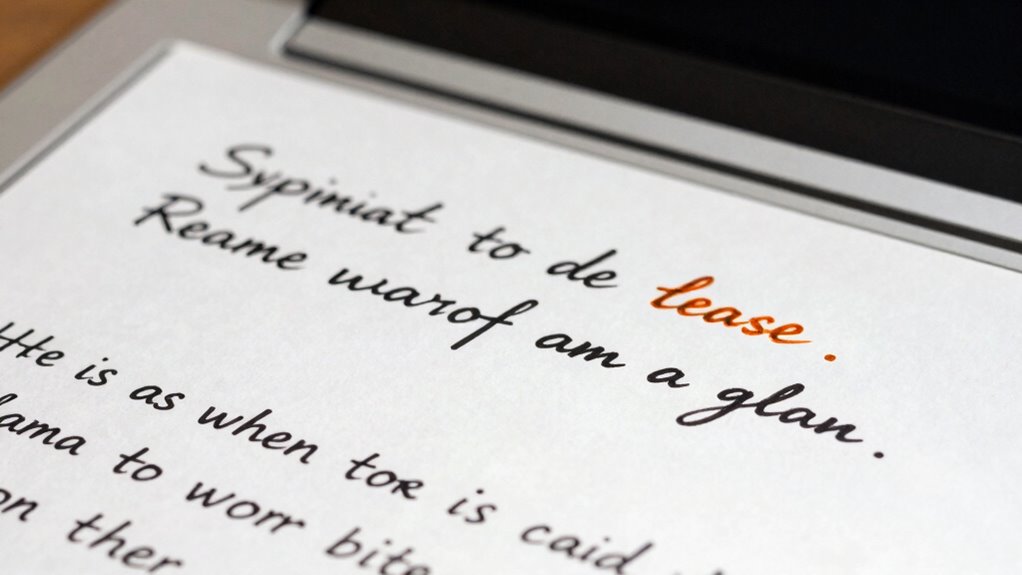 Sypiniat to de lease.
Reame warof am a glan.
He is as when tor is caid
lama to worr bite
on ther